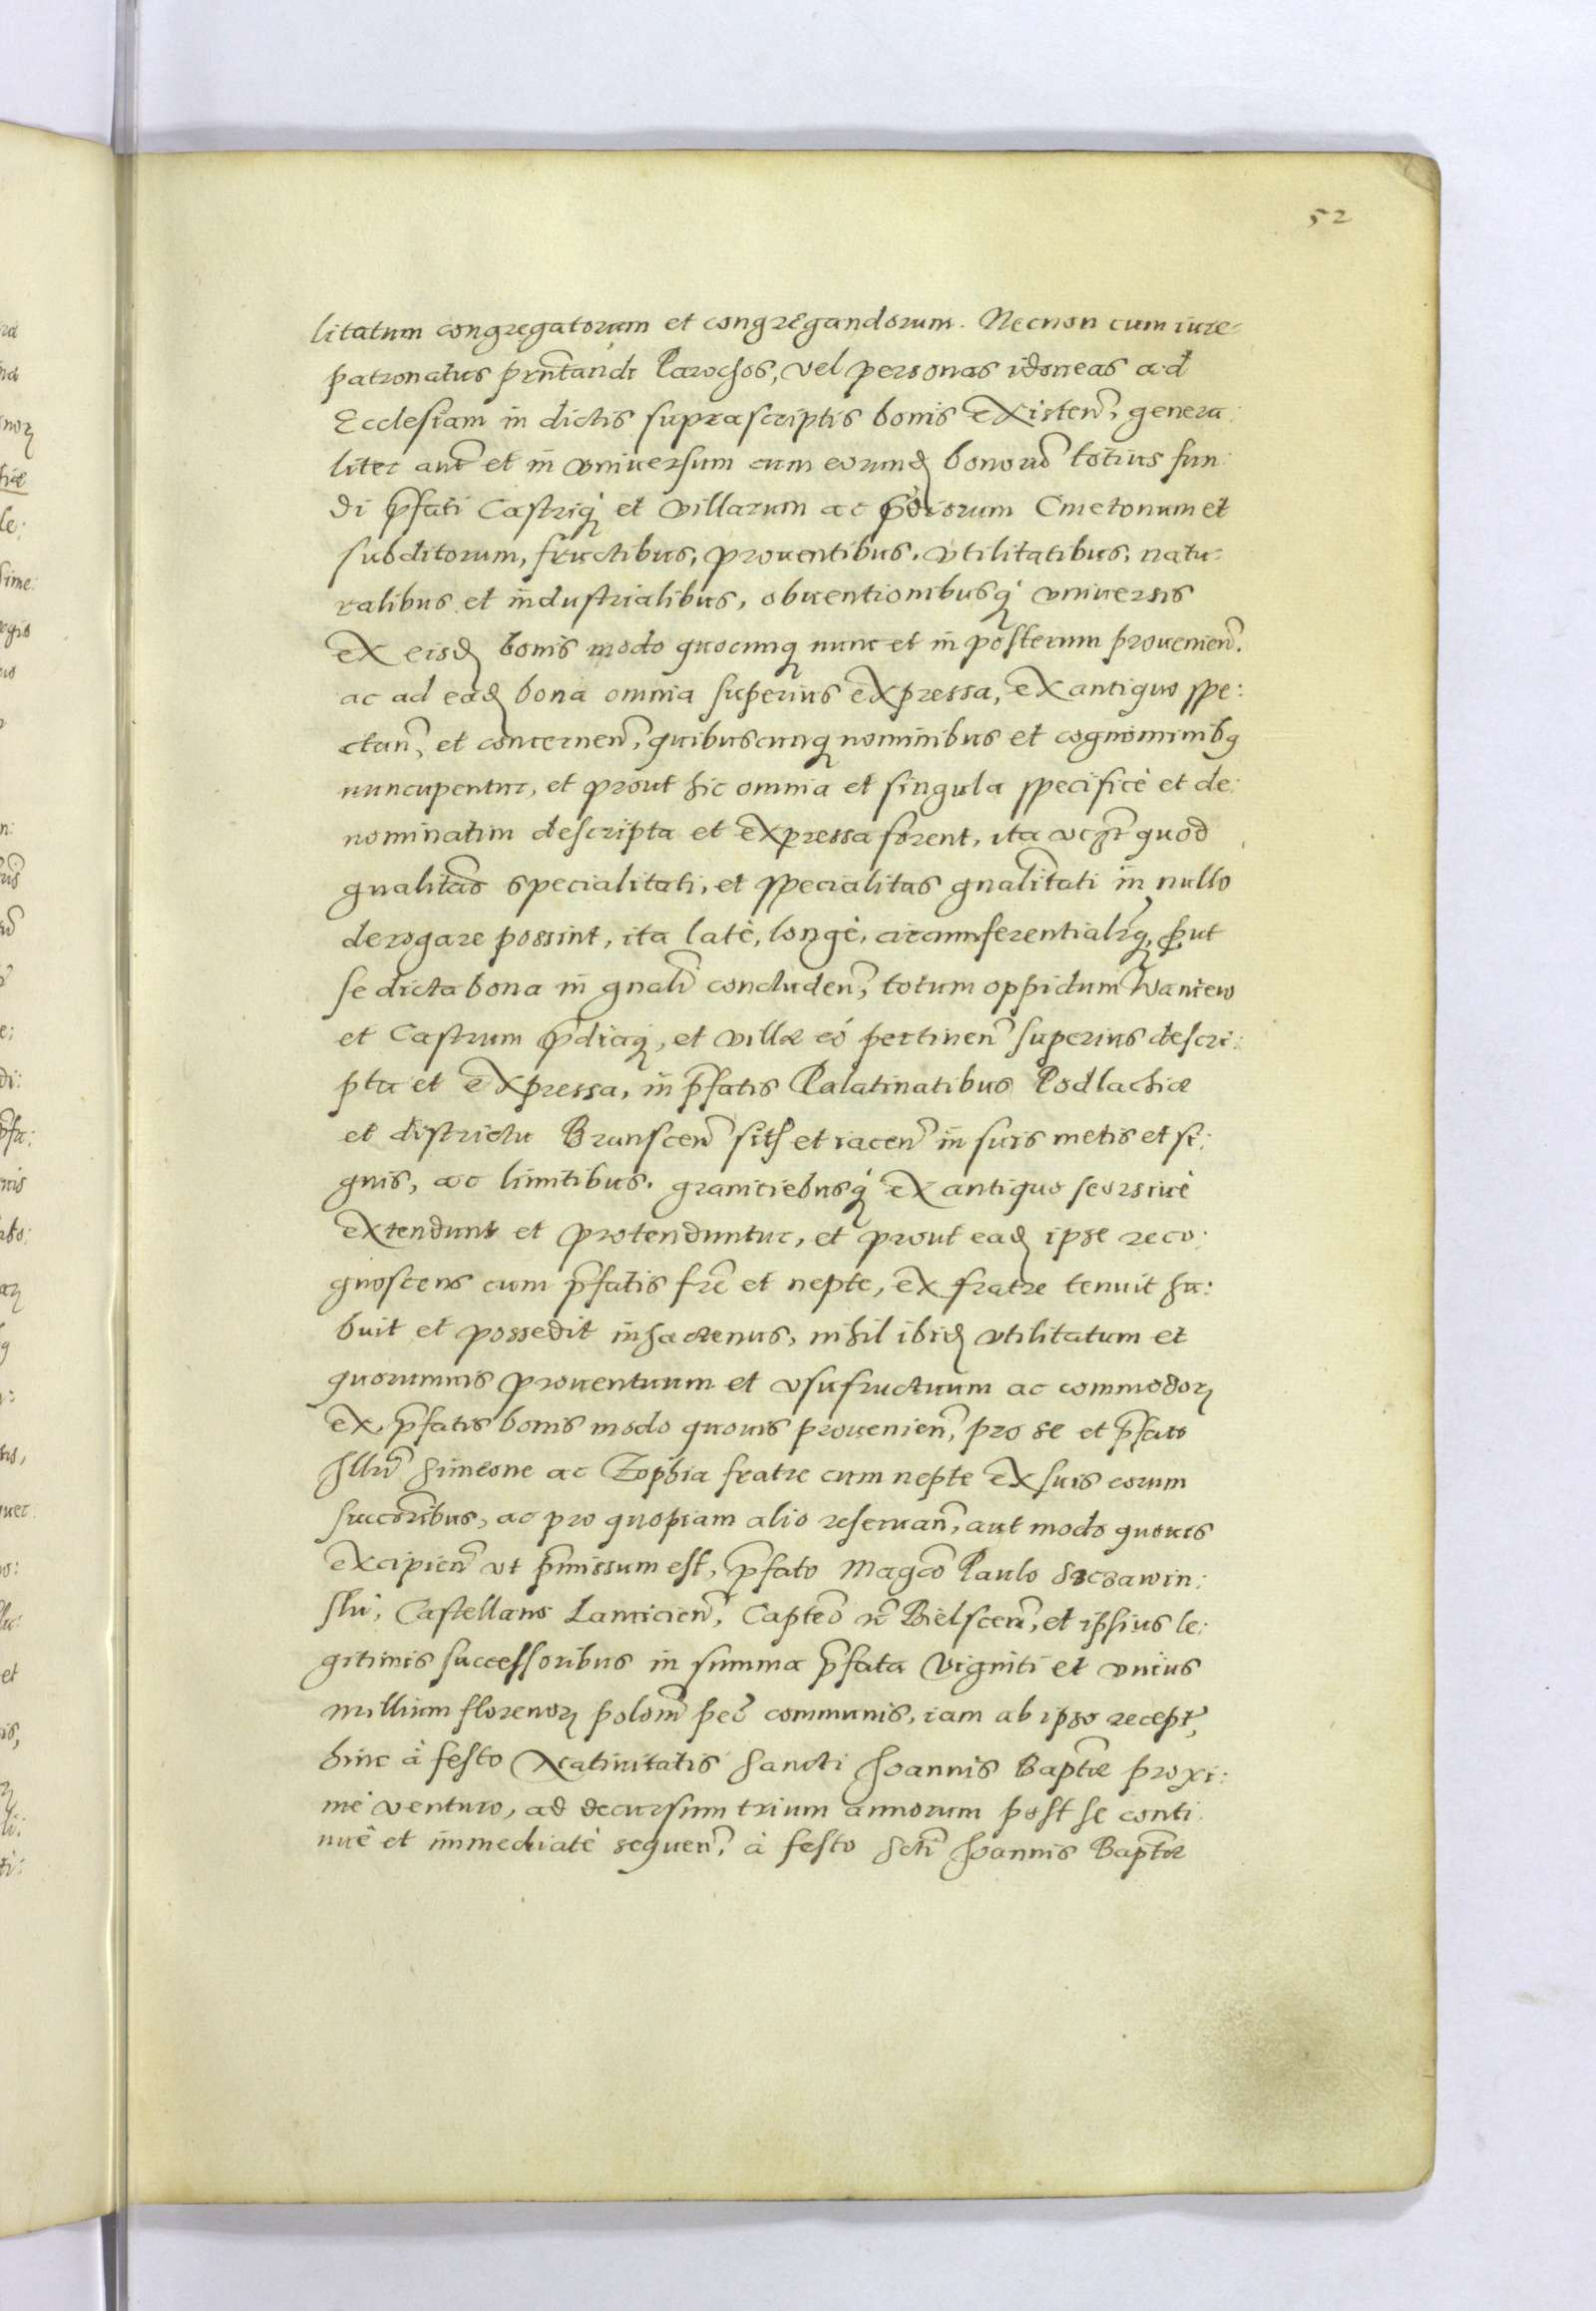 52
litatum congregatorum et congregandorum. Necnon cum iure-
patronatus pr̃ntandi Parochos, vel personas idoneas ad
Ecclesiam in dictis suprascriptis bonis existeñ, genera:
liter aut̃ et in vniuersum cum eorund bonorũ totius fun:
di p̃fati Castriq et villarum ac p̃diorum Cmetonum et
subditorum, fructibus, prouentibus, vtilitatibus, natu:
ralibus et industrialibus, obuentionibusq vniuersis
ex eisd bonis modo quocunq nunc et in posterum prouenieñ.
ac ad ead bona omnia superius expressa, ex antiquo spe:
ctañ, et concerneñ, quibuscunq nominibus et cognominibq
nuncupentur, et prout hic omnia et singula specificè et de:
nominatim descripta et expressa forent, ita quod
gnalitas specialitati, et specialitas gnalitati in nullo
derogare possint, ita latè, longè, circumferentialrq, ꝓut
se dicta bona in gnali concludeñ, totum oppidum Waniew
et Castrum p̃dictq, et villæ eó pertineñ superius descri:
pta et expressa, in p̃fatis Palatinatibus Podlachiæ
et districtu Bransceñ sith et iaceñ in suis metis et si:
gnis, ac limitibus, graniciebusq ex antiquo seorsiuè
extendunt et protenduntur, et prout ead ipse reco:
gnoscens cum p̃fatis fr̃e et nepte, ex fratre tenuit ha:
buit et possedit inhactenus, nihil ibid vtilitatum et
quorumuis prouentuum et vsufructuum ac commodoꝝ
ex p̃fatis bonis modo quouis prouenieñ, pro se et p̃fato
Illri Simeone ac Zophia fratre cum nepte ex suis eorum
succõribus, ac pro quopiam alio reseruañ, aut modo quouis
excipieñ vt p̃missum est, p̃fato Magco Paulo Sczawin:
ski, Castellano Lancicieñ, Capteo Bielsceñ, et ipsius le:
gitimis successoribus in summa p̃fata Viginti et vnius
millium florenoꝝ poloni pec̃ communis, iam ab ipso recept,
hinc à festo Natiuitatis Sancti Joannis Baptæ proxi:
mè venturo, ad decursum trium annorum post se conti:
nuè et immediatè sequeñ, à festo Scti Joannis Baptæ